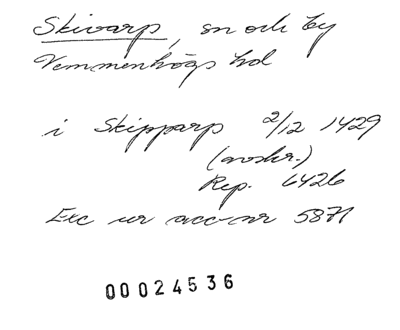 Skivarp, sn och by
Vemmenhögs hd
i Skipparp 2/12 1429
(avskr.)
Rep. 6426
Exc ur acc-nr 5871
00024536